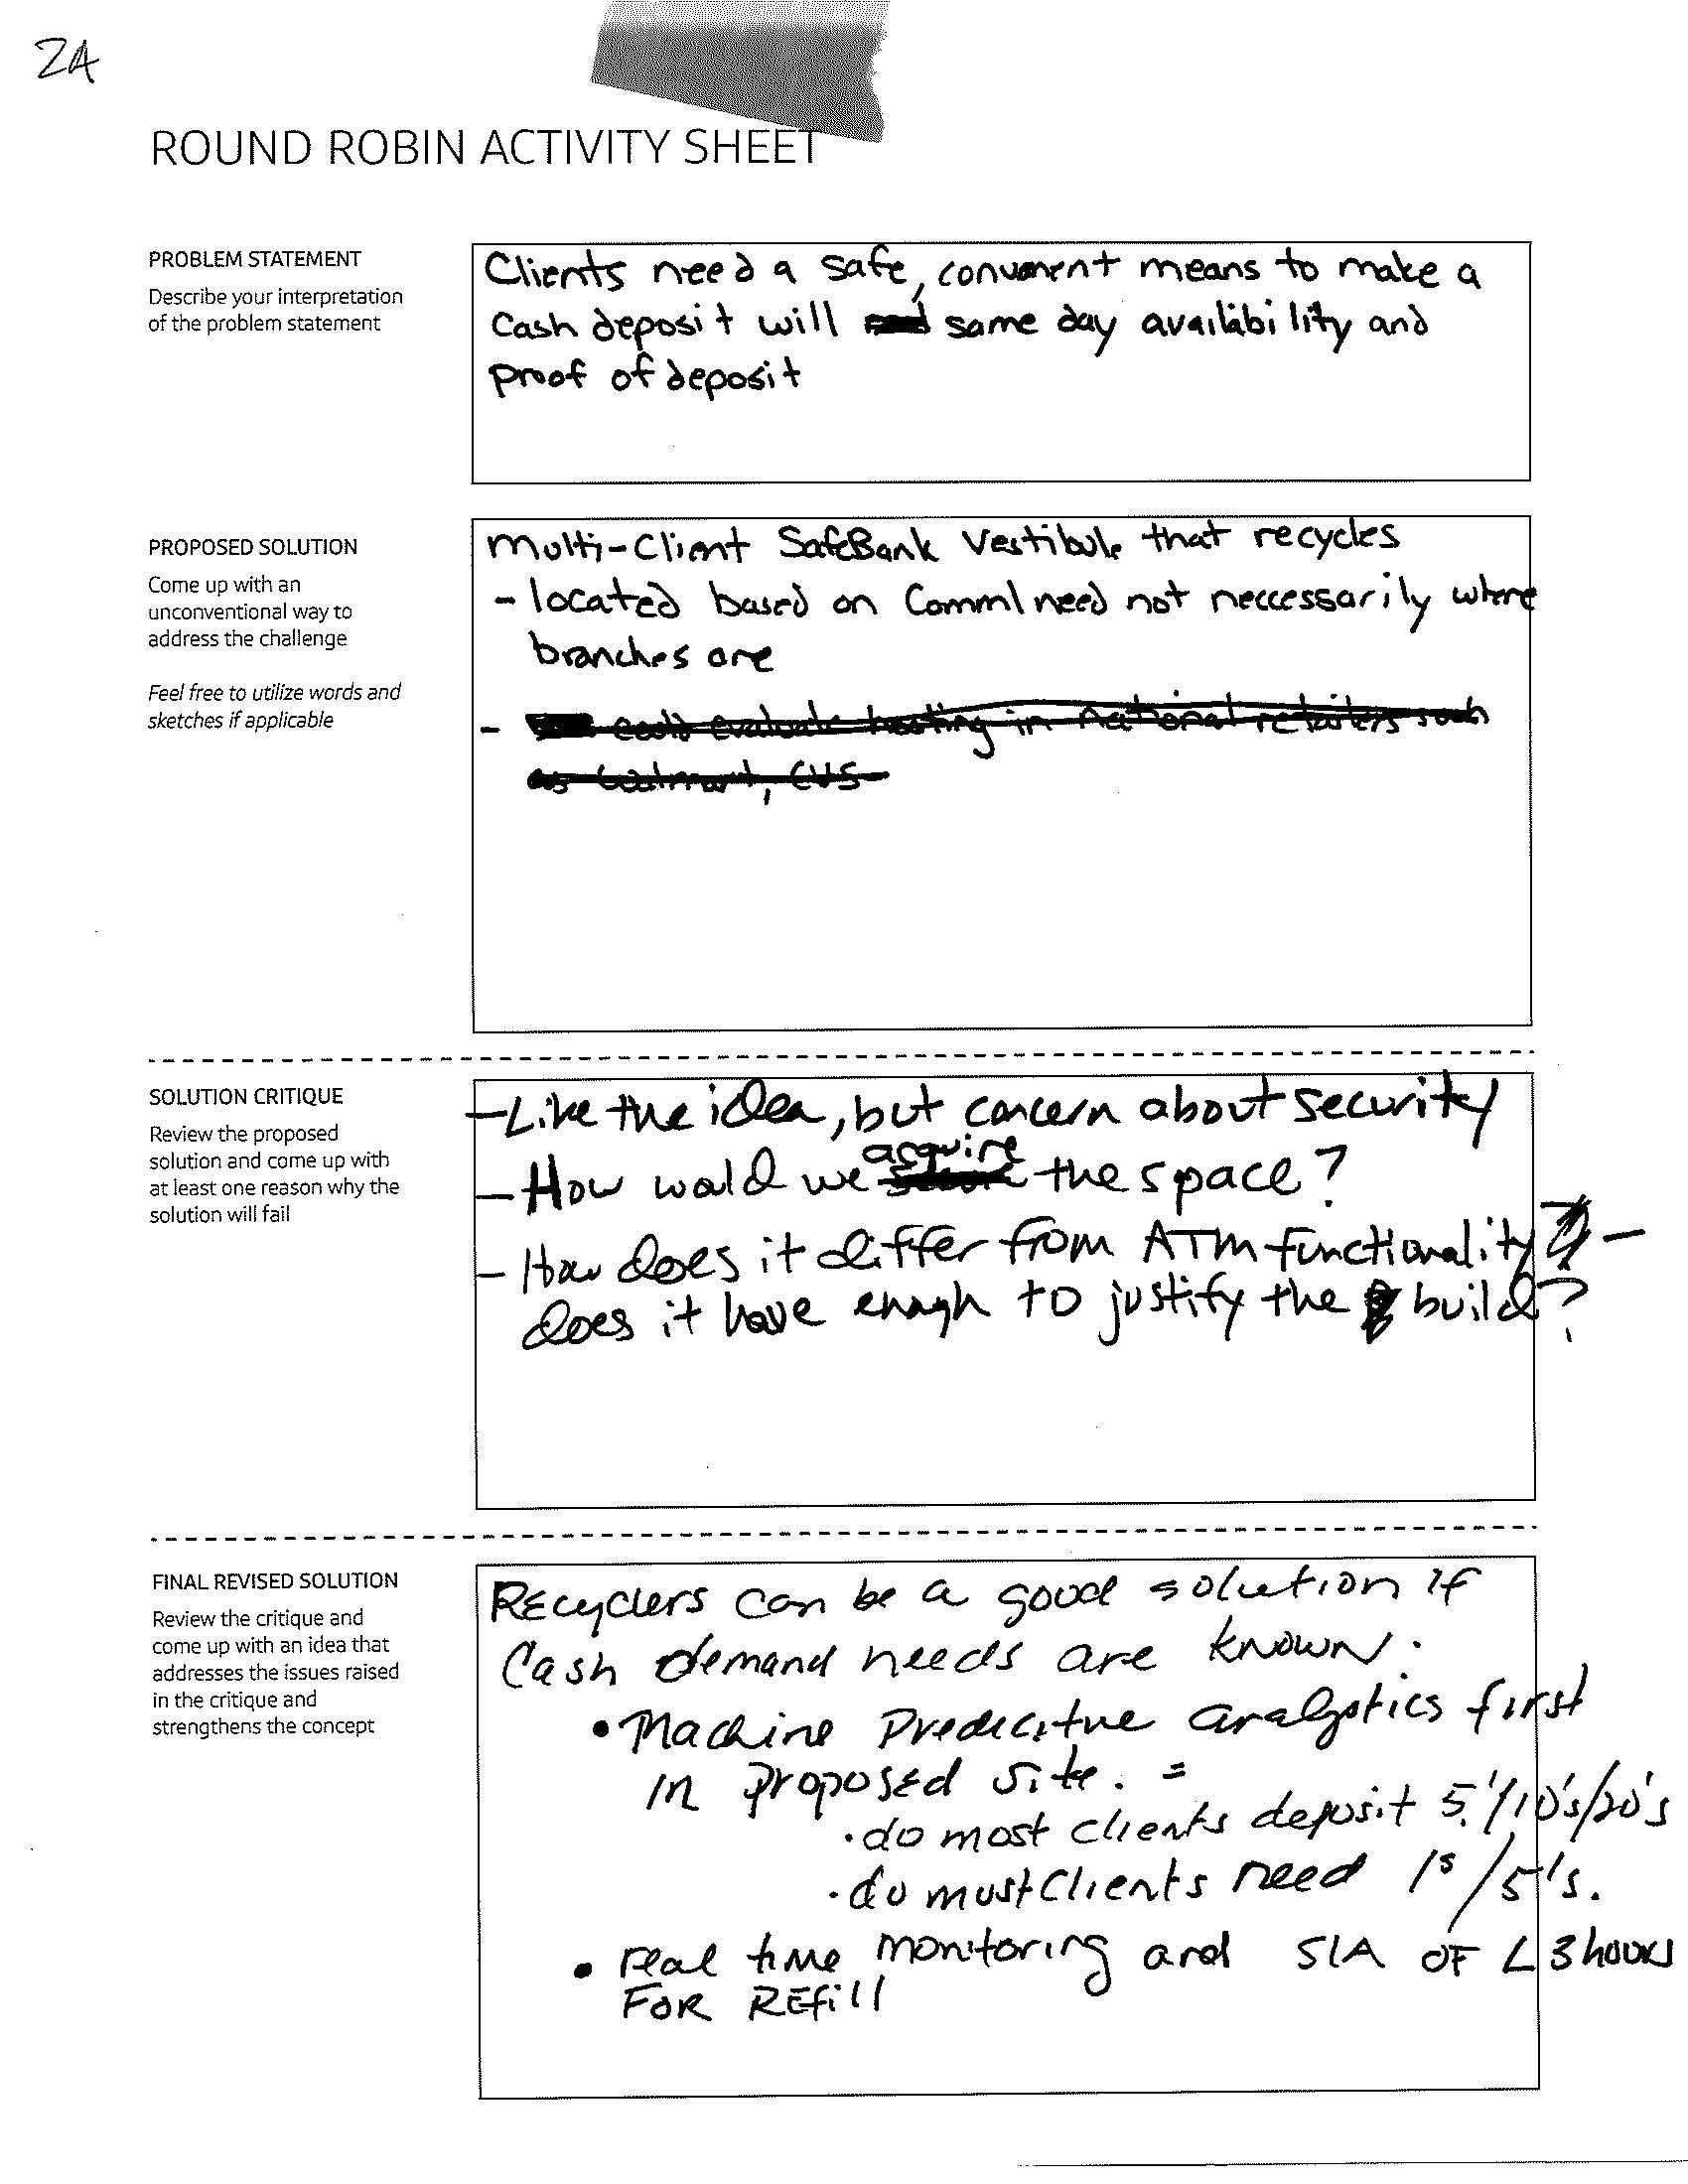 2A
ROUND ROBIN ACTIVITY SHEET
PROBLEM STATEMENT
Describe your interpretation
of the problem statement
Clients need a safe, convenent means to make a
Cash deposit will same day availibility and
proof of deposit
PROPOSED SOLUTION
Come up with an
unconventional way to
address the challenge
Feel free to utilize words and
sketches if applicable
Multi-Client SafeBank Vestibule that recycles
- located based on Comml need not neccessarily where
branches are
- could evaluate hosting in national retailers such
as Walmart, CVS
SOLUTION CRITIQUE
Review the proposed
solution and come up with
at least one reason why the
solution will fail
- Like the idea, but concern about security
- How would we acquire the space?
- How does it differ from ATM functionality -
does it have enough to justify the build?
FINAL REVISED SOLUTION
Review the critique and
come up with an idea that
addresses the issues raised
in the critique and
strengthens the concept
Recyclers can be a good solution if
Cash demand needs are known.
• Machine Predicitve analytics first
in proposed site. =
· do most clients deposit 5's/10's/20's
· do most Clients need 1s/5's.
• real time monitoring and SLA OF < 3 hours
FOR REfill